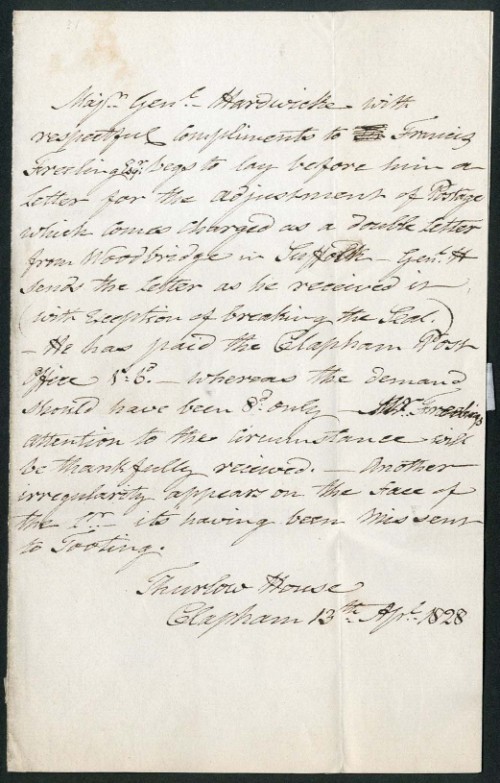 Majr. Genl. Hardwicke with
respectful compliments to Francis
Freeling Esqr. begs to lay before him a
Letter for the adjustment of Postage
which comes charged as a double Letter
from Woodbridge in Suffolk – Genl. H
sends the Letter as he received it,
(with exception of breaking the Seal.)
– He has paid the Clapham Post
Office – whereas the demand
should have been 8d. only – Mr. Freelings
attention to the circumstance will
be thankfully recieved. – Another
irregularity appears on the Face of
the Lr. – its having been Missent
to Tooting.
Thurlow House
Clapham 13th Apl. 1828